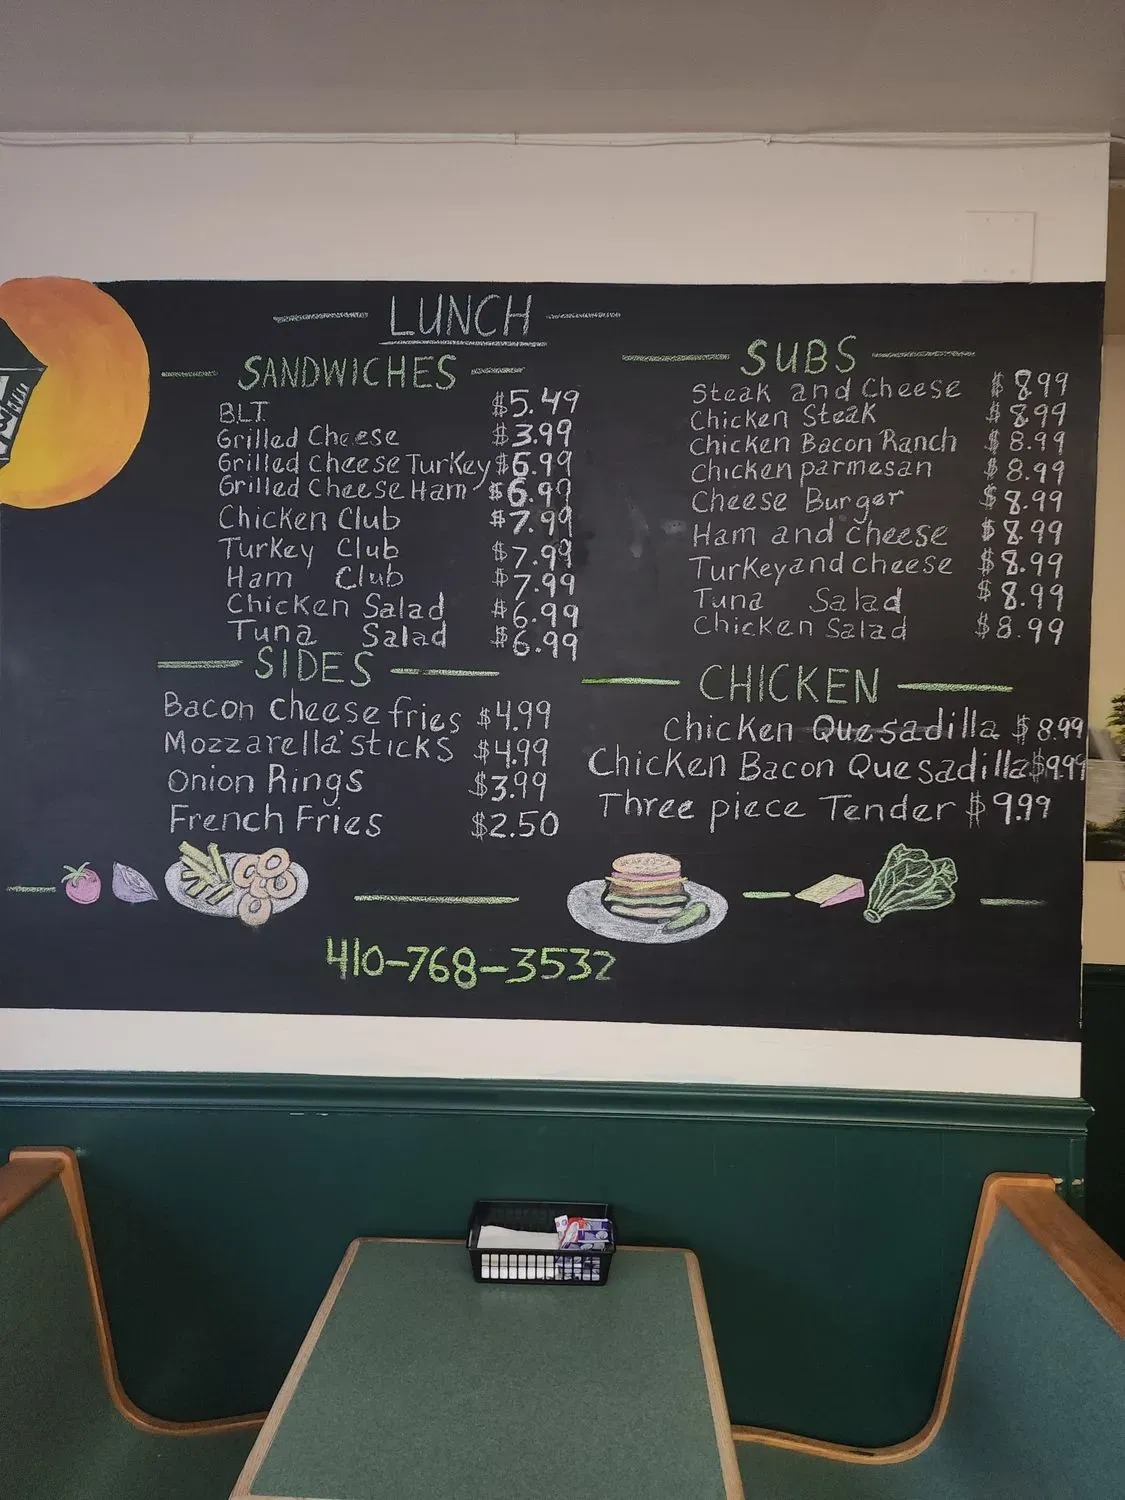 LUNCH
SANDWICHES
BLT $5.49
Grilled Cheese $3.99
Grilled Cheese Turkey $6.99
Grilled Cheese Ham $6.99
Chicken Club $7.99
Turkey Club $7.99
Ham Club $7.99
Chicken Salad $6.99
Tuna Salad $6.99
SIDES
Bacon cheese fries $4.99
Mozzarella sticks $4.99
Onion Rings $3.99
French Fries $2.50
SUBS
Steak and Cheese $8.99
Chicken Steak $8.99
Chicken Bacon Ranch $8.99
Chicken parmesan $8.99
Cheese Burger $8.99
Ham and cheese $8.99
Turkey and cheese $8.99
Tuna Salad $8.99
Chicken Salad $8.99
CHICKEN
Chicken Quesadilla $8.99
Chicken Bacon Quesadilla $9.99
Three piece Tender $9.99
410-768-3532